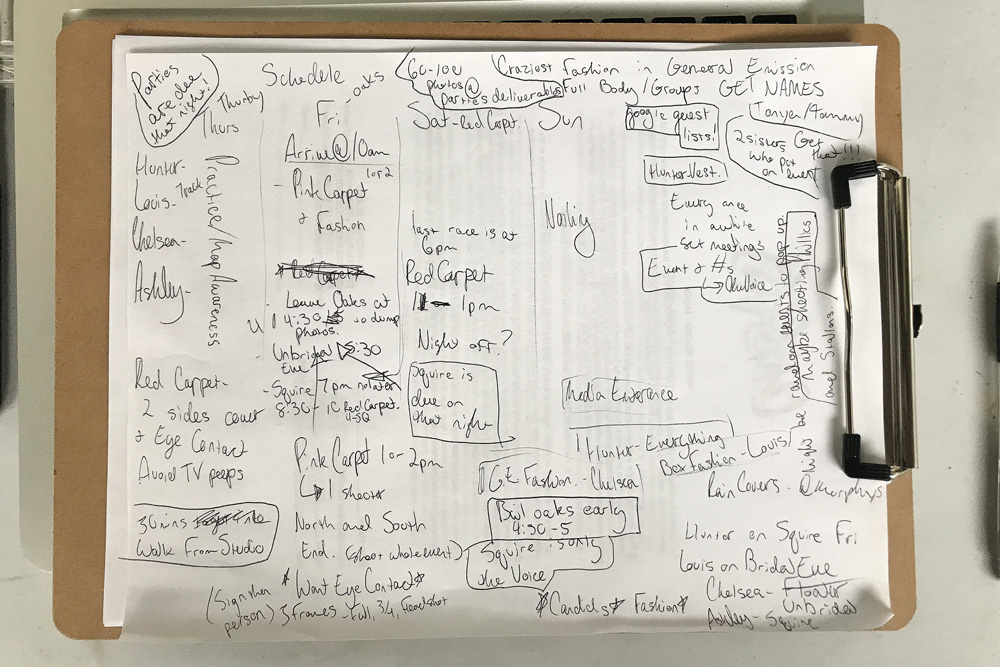 Parties
are due
that night!
Schedele
Thurby
Thurs
Hunter-
Louis-Track
Chelsea-
Ashley-
Practice/Map Awareness
Oaks
Fri
Arrive@10am
1 or 2
- Pink Carpet
+ Fashion
Red Carpet
- Leave Oaks at
4:30 to dump
photos.
- Unbridled 5:30
Eve
- Squire 7pm no later
8:30 - 10 Red Carpet.
60-100
photos@
parties deliverables
Craziest Fashion in General
Full Body/Groups GET NAMES
Sat-Red Carpet.
last race is at
6pm
Red Carpet
1pm
Night off?
Squire is
due on
that night
Sun
Google guest
lists!
Tonya/Tammy
2 sisters Get
that!!!
who put
on event
Hunter Vest.
Every once
in awhile
set meetings
Event & #s
Nothing
might be random events to pop up.
Maybe shooting Phillies
and Stallions.
Media Enterence
Red Carpet-
2 sides cover
+ Eye Contact
Avoid TV peeps
30 mins
Walk From Studio
Pink Carpet 1 or 2pm
1 shooter
North and South
End. (shoot whole event)
*Want Eye Contact*
(Sign then
person) 3 frames - Full, 3/4, Headshot
Hunter-Everything
Box Fashion-Louis
GE Fashion.-Chelsea
Rain Covers-@Murphys
Bail oaks early
4:30-5
Squire is only
the Voice
*Candids* Fashion*
Hunter on Squire Fri
Louis on Bridal Eve
Chelsea-Floater
Unbridled
Ashley-Squire